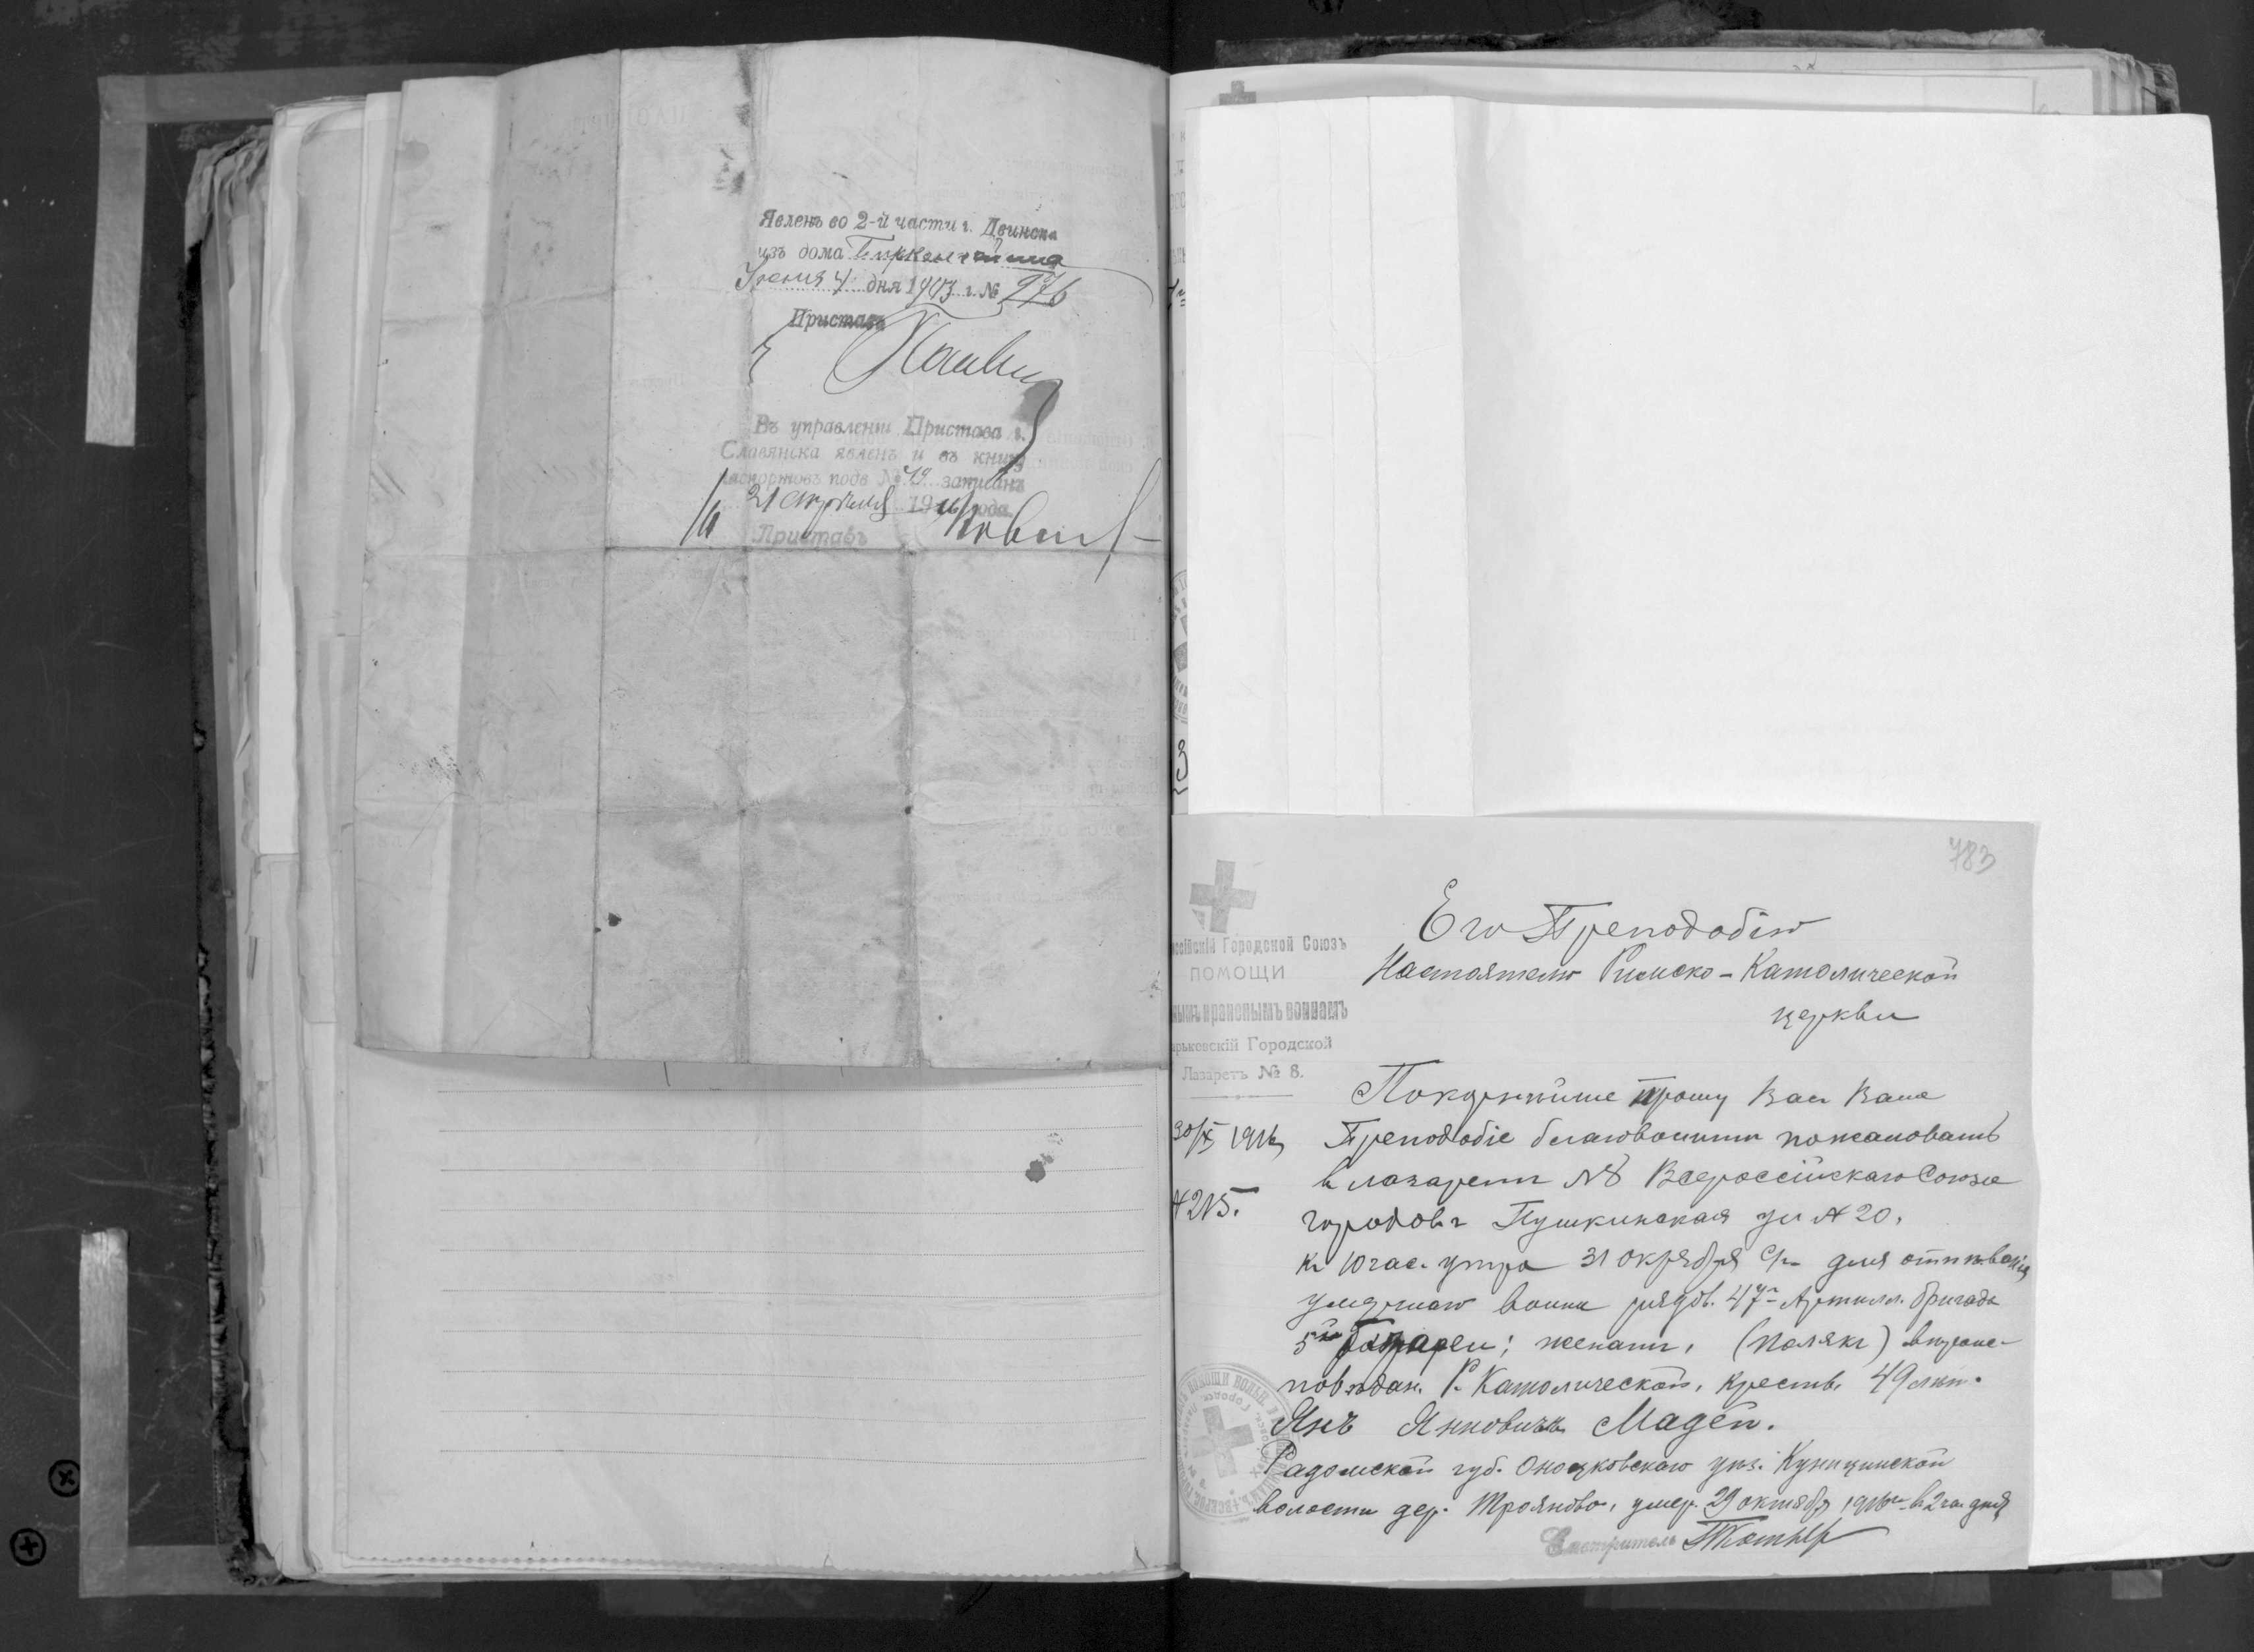 Явленъ во 2-й части г. Двинска
изъ дома
Июня 4 дня 1903 г. № 276
Приставъ
Въ управленіи Пристава г.
Славянска явленъ и въ книгу
паспортовъ подъ № записанъ
21 Апрѣля 19 года.
Приставъ
783
ссійскій Городской Союзъ
ПОМОЩИ
нымъ и раненымъ воинамъ
арьковскій Городской
Лазаретъ № 8.
30/X 1916
№ 215.
Его Преподобію
Настоятелю Римско-Католической
церкви
Покорнѣйше прошу Вас Ваше
Преподобіе благоволите пожаловать
в лазарет № 8 Всероссійскаго Союза
городовъ Пушкинская ул № 20.
к 10 час. утра 31 октября с/г для отпѣванія
умершаго воина рядов. 47й Артилл. бригады
5й батареи; женатъ, (полякъ) вѣроис-
повѣдан. Р. Католической, крестьв. 49 лѣт.
Янъ Янновичъ Мадей.
Радомской губ. уѣз. Куницинской
волости дер. Трояново, умер. 29 октября 1916 г. в 2 час дня
Смотритель